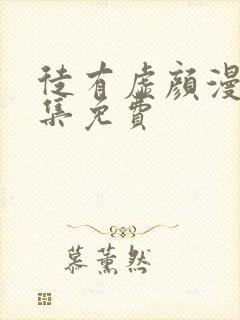 徒有虛顏漫
集免費
慕薰然